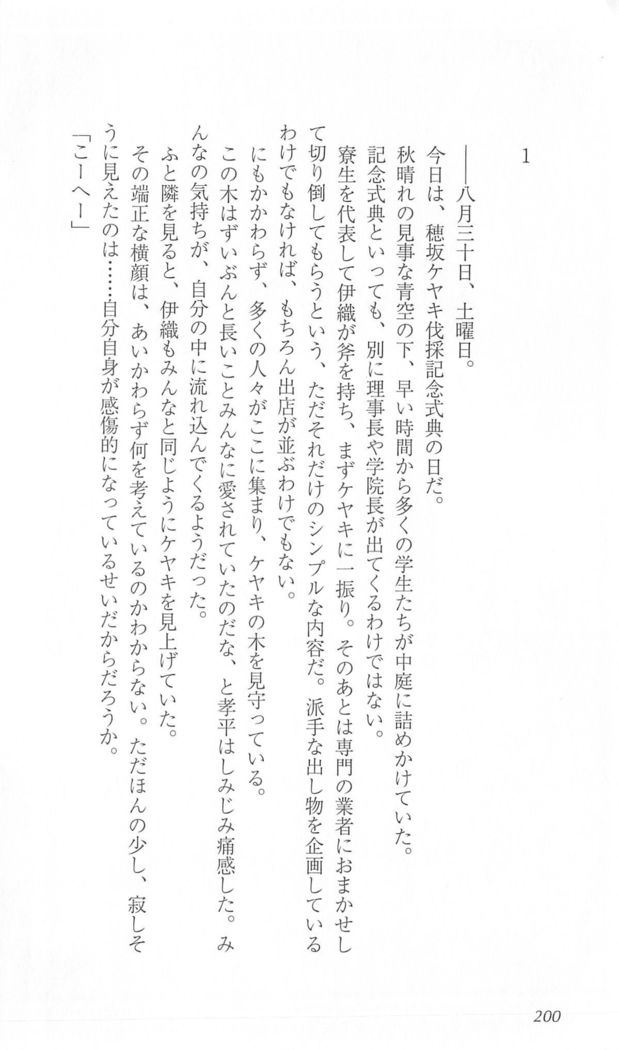 1
――八月三十日、土曜日。
今日は、穂坂ケヤキ伐採記念式典の日だ。
秋晴れの見事な青空の下、早い時間から多くの学生たちが中庭に詰めかけていた。
記念式典といっても、別に理事長や学院長が出てくるわけではない。
寮生を代表して伊織が斧を持ち、まずケヤキに一振り。そのあとは専門の業者におまかせし
て切り倒してもらうという、ただそれだけのシンプルな内容だ。派手な出し物を企画している
わけでもなければ、もちろん出店が並ぶわけでもない。
にもかかわらず、多くの人々がここに集まり、ケヤキの木を見守っている。
この木はずいぶんと長いことみんなに愛されていたのだな、と孝平はしみじみ痛感した。み
んなの気持ちが、自分の中に流れ込んでくるようだった。
ふと隣を見ると、伊織もみんなと同じようにケヤキを見上げていた。
その端正な横顔は、あいかわらず何を考えているのかわからない。ただほんの少し、寂しそ
うに見えたのは……自分自身が感傷的になっているせいだからだろうか。
「こーへー」
200